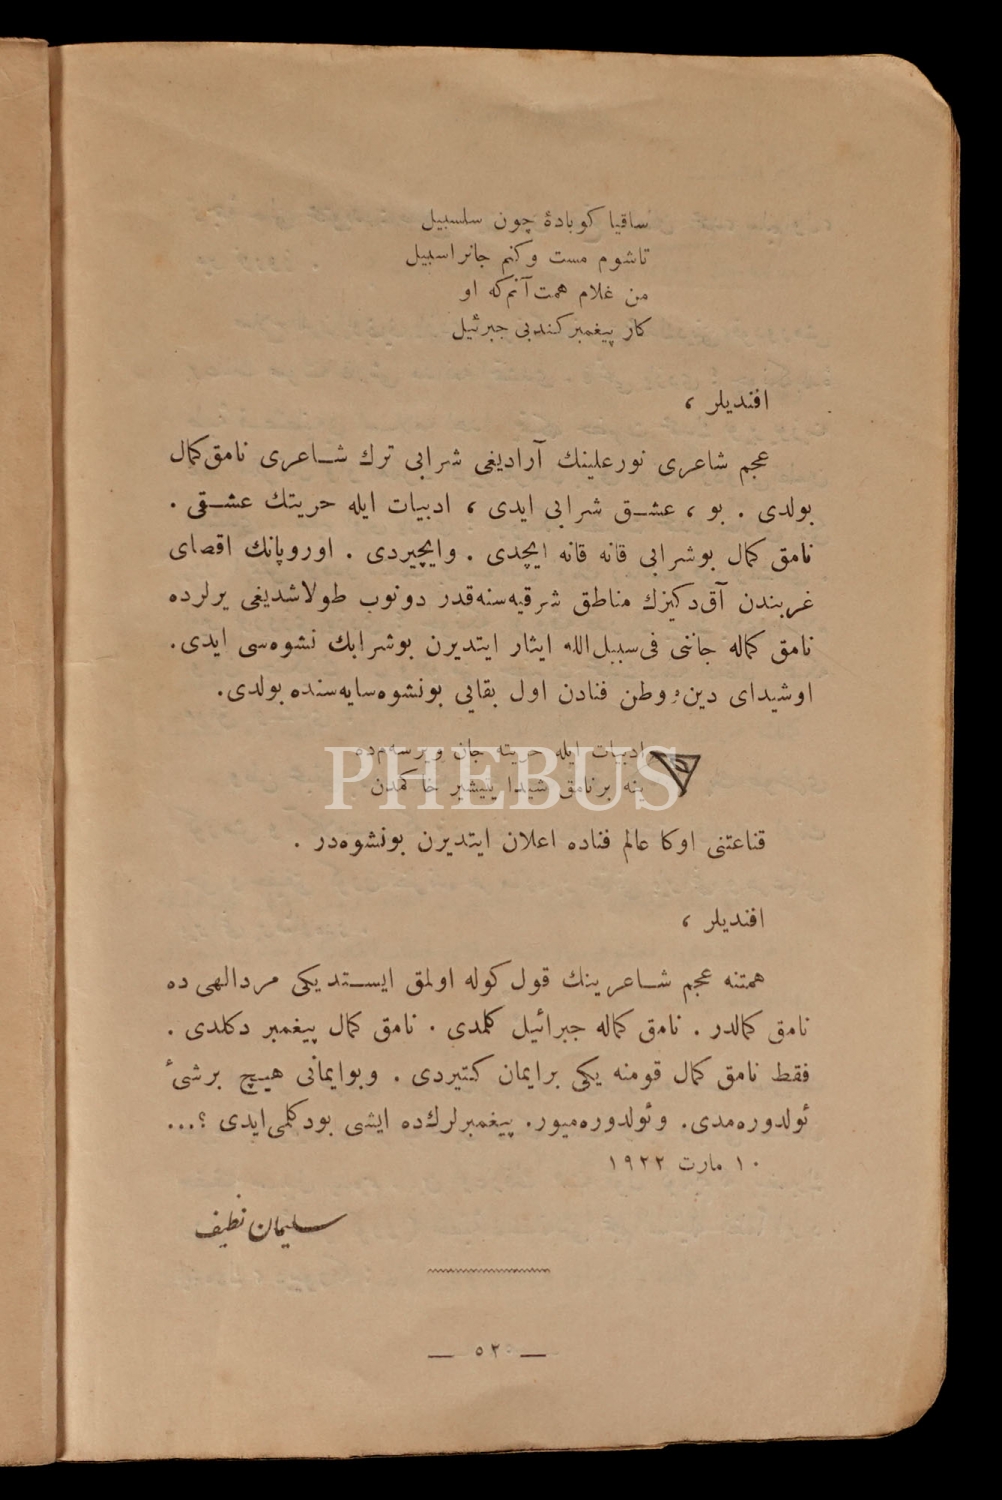 ساقیا کو بادهٔ چون سلسبیل
تاشوم مست وکنم جانرا سبیل
من غلام همت آنم که او
کار پیغمبر کند بی جبرئیل
افندیلر ،
عجم شاعری نورعلینك آرادیغی شرابی ترك شاعری نامق کمال
بولدی . بو ، عشق شرابی ایدی ، ادبیات ایله حریتك عشقی .
نامق کمال بوشرابی قانه قانه ایچدی . وایچیردی . اوروپانك اقصای
غربندن آق‌دکیزك مناطق شرقیه‌سنه‌قدر دونوب طولاشدیغی یرلرده
نامق کماله جاننی فی‌سبیل‌الله ایثار ایتدیرن بوشرابك نشوه‌سی ایدی.
اوشیدای دین و وطن فنادن اول بقایی بونشوه‌سایه‌سنده بولدی.
ادبیات ایله حریته جان ویرسه‌م‌ده
ینه برنامق شیدا یتیشیر خاکمدن
PHEBUS
قناعتنی اوکا عالم فناده اعلان ایتدیرن بونشوه‌در .
افندیلر ،
همتنه عجم شاعرینك قول کوله اولمق ایستدیکی مردالهی ده
نامق کمالدر . نامق کماله جبرائیل کلمدی . نامق کمال پیغمبر دکلدی .
فقط نامق کمال قومنه یکی برایمان کتیردی . وبوایمانی هیچ برشیء
ئولدوره‌مدی. وئولدوره‌میور. پیغمبرلرك‌ده ایشی بودکلمی‌ایدی ؟...
۱۰ مارت ۱۹۲۲
سلیمان نظیف
— ٥٢ —